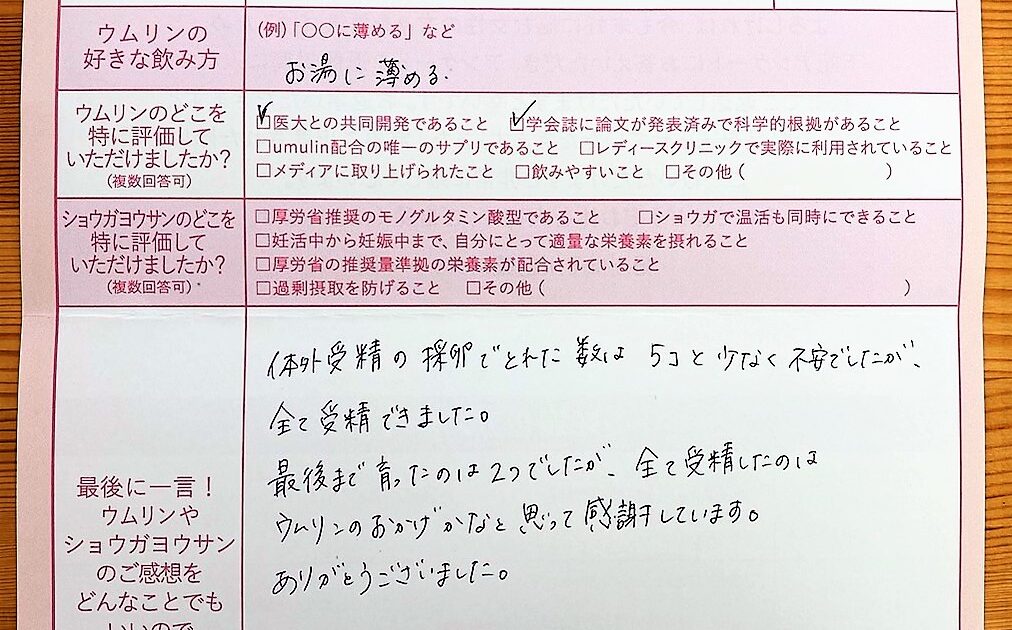 ウムリンの
好きな飲み方
(例)「〇〇に薄める」など
お湯に薄める.
ウムリンのどこを
特に評価して
いただけましたか?
(複数回答可)
☑医大との共同開発であること ☑学会誌に論文が発表済みで科学的根拠があること
□umulin配合の唯一のサプリであること □レディースクリニックで実際に利用されていること
□メディアに取り上げられたこと □飲みやすいこと □その他 ( )
ショウガヨウサンのどこを
特に評価して
いただけましたか?
(複数回答可)*
□厚労省推奨のモノグルタミン酸型であること □ショウガで温活も同時にできること
□妊活中から妊娠中まで、自分にとって適量な栄養素を摂れること
□厚労省の推奨量準拠の栄養素が配合されていること
□過剰摂取を防げること □その他 ( )
最後に一言!
ウムリンや
ショウガヨウサン
のご感想を
どんなことでも
いいので
体外受精の採卵でとれた数は5コと少なく不安でしたが、
全て受精できました。
最後まで育ったのは2つでしたが、全て受精したのは
ウムリンのおかげかなと思って感謝しています。
ありがとうございました。